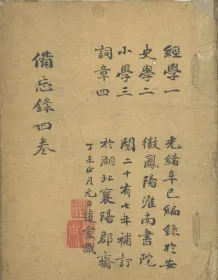 備忘錄四卷
經學一
史學二
小學三
詞章四
光緒辛巳編錄於安
徽鳳陽淮南書院
閱二十有七年補訂
於湖北襄陽郡齋
丁未正月元日復盦識